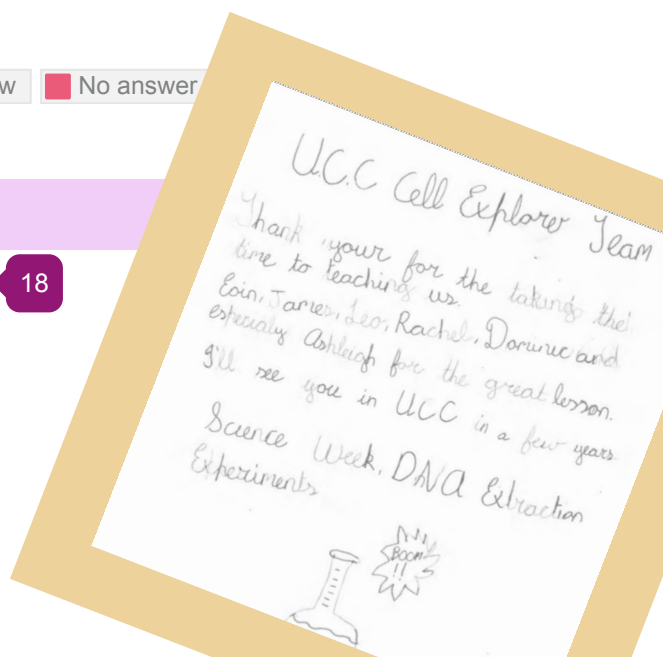 w
No answer
18
U.C.C Cell Explorer Team
Thank your for the taking the
time to teaching us.
Eoin, James, Leo, Rachel, Dominic and
especialy Ashleigh for the great lesson.
I'll see you in UCC in a few years
Science Week, DNA Extraction
Experiments
BOOM
!!